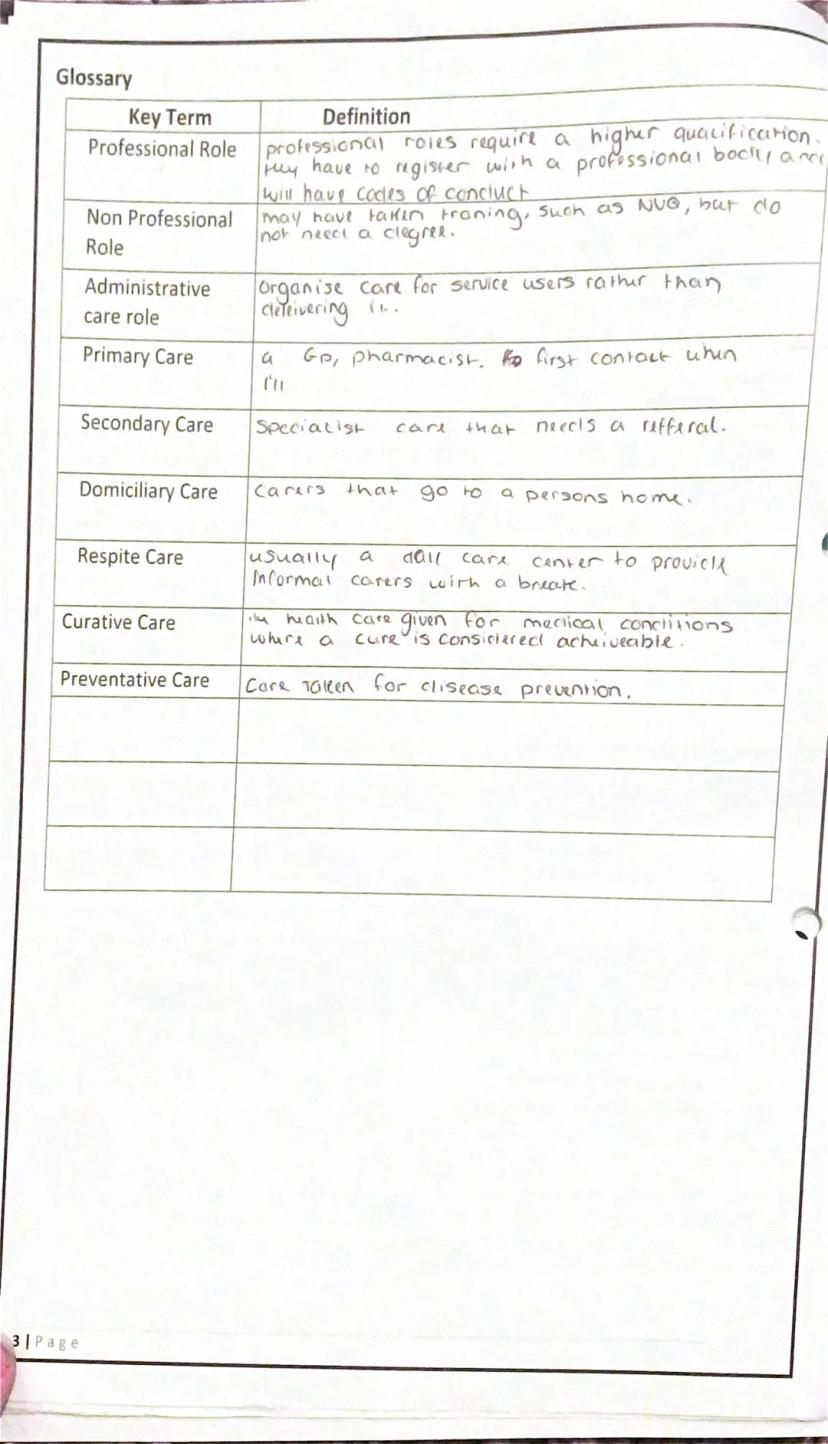 Glossary
Key Term Definition
Professional Role professional roles require a higher qualification.
they have to register with a professional body and
will have codes of conduct
Non Professional may have taken traning, such as NVQ, but do
Role not need a degree.
Administrative organise care for service users rather than
care role deleivering it.
Primary Care a GP, pharmacist. first contact when
ill
Secondary Care Specialist care that needs a refferal.
Domiciliary Care Carers that go to a persons home.
Respite Care usually a day care center to provide
informal carers with a break.
Curative Care the health care given for medical conditions
where a cure is considered acheiveable.
Preventative Care Care taken for disease prevention.
3 | Page